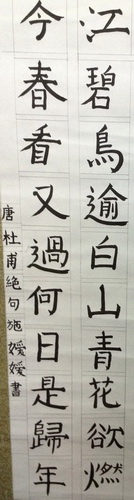 江碧鳥逾白山青花欲燃
今春看又過何日是歸年
唐杜甫絕句施嬡嬡書